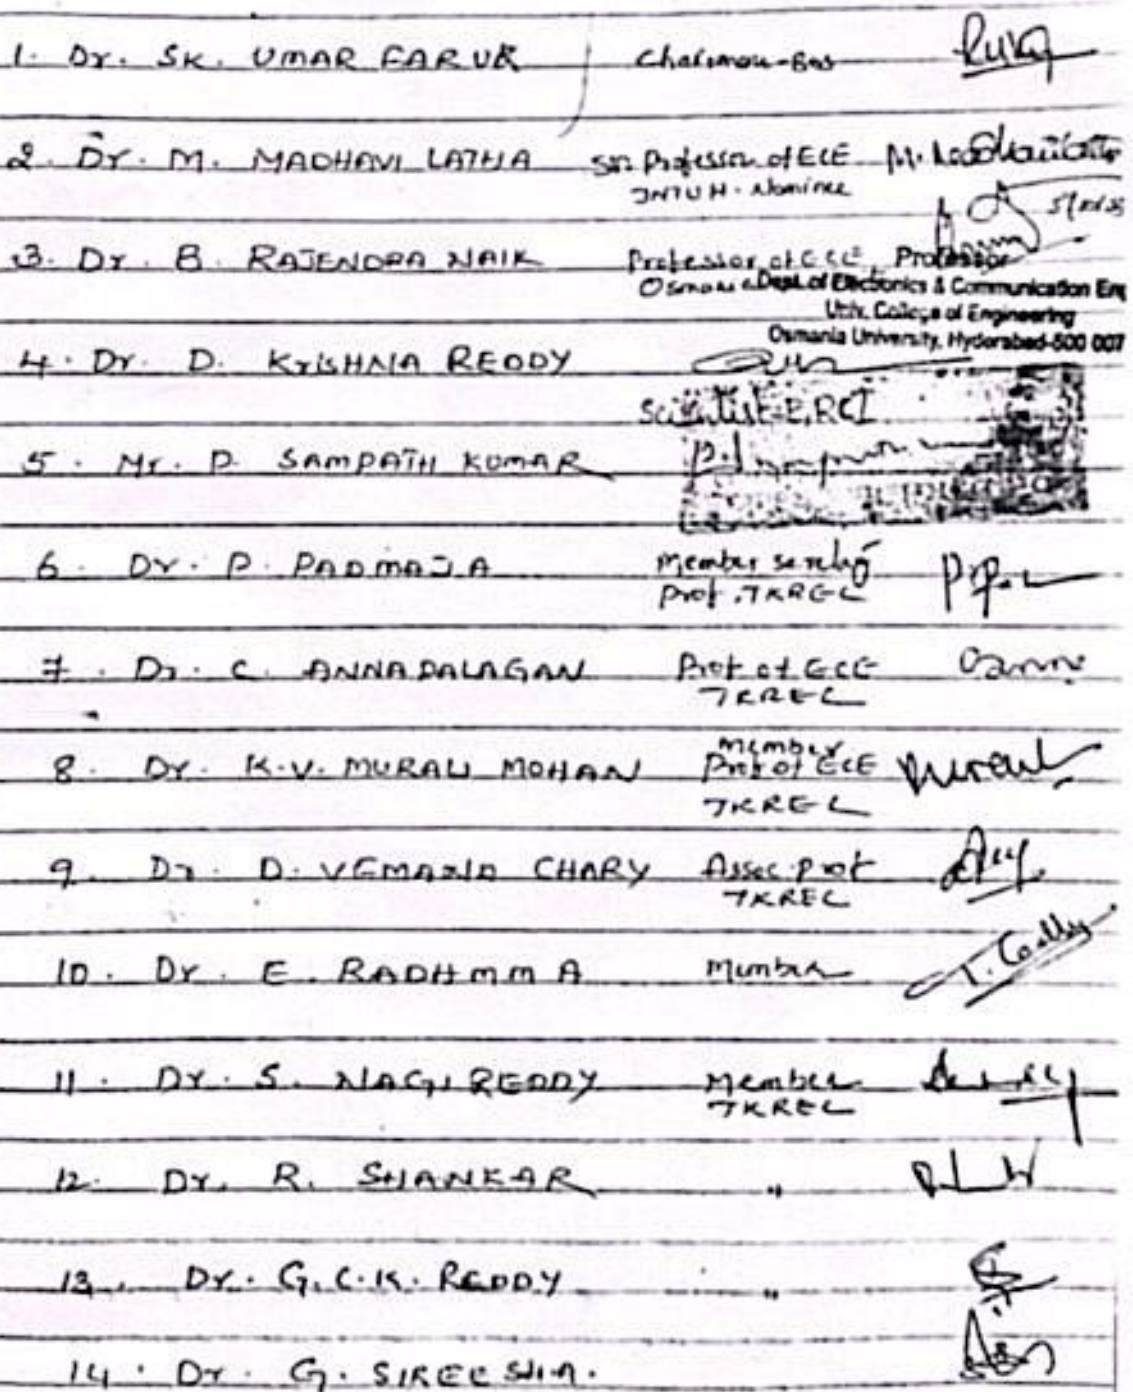 1. Dr. SK. UMAR FARUK Chairman-BoS
2. Dr. M. MADHAVI LATHA Sr. Professor of ECE
JNTUH - Nominee
3. Dr. B. RAJENDRA NAIK Professor of ECE, Professor
Dept. of Electronics & Communication Eng
Univ. College of Engineering
Osmania University, Hyderabad-500 007
4. Dr. D. KRISHNA REDDY
Scientist-E, RCI
5. Mr. P. SAMPATH KUMAR
6. Dr. P. PADMAJA Member
Prof. TKREC
7. Dr. C. ANNADALAGAN Prof of ECE
TKREC
Member
8. Dr. K.V. MURALI MOHAN Prof of ECE
TKREC
9. Dr. D. VEMANA CHARY Assoc. Prof
TKREC
10. Dr. E. RADHMMA Member
11. Dr. S. NAGI REDDY Member
TKREC
12. Dr. R. SHANKAR "
13. Dr. G.C.K. REDDY "
14. Dr. G. SIREESHA.